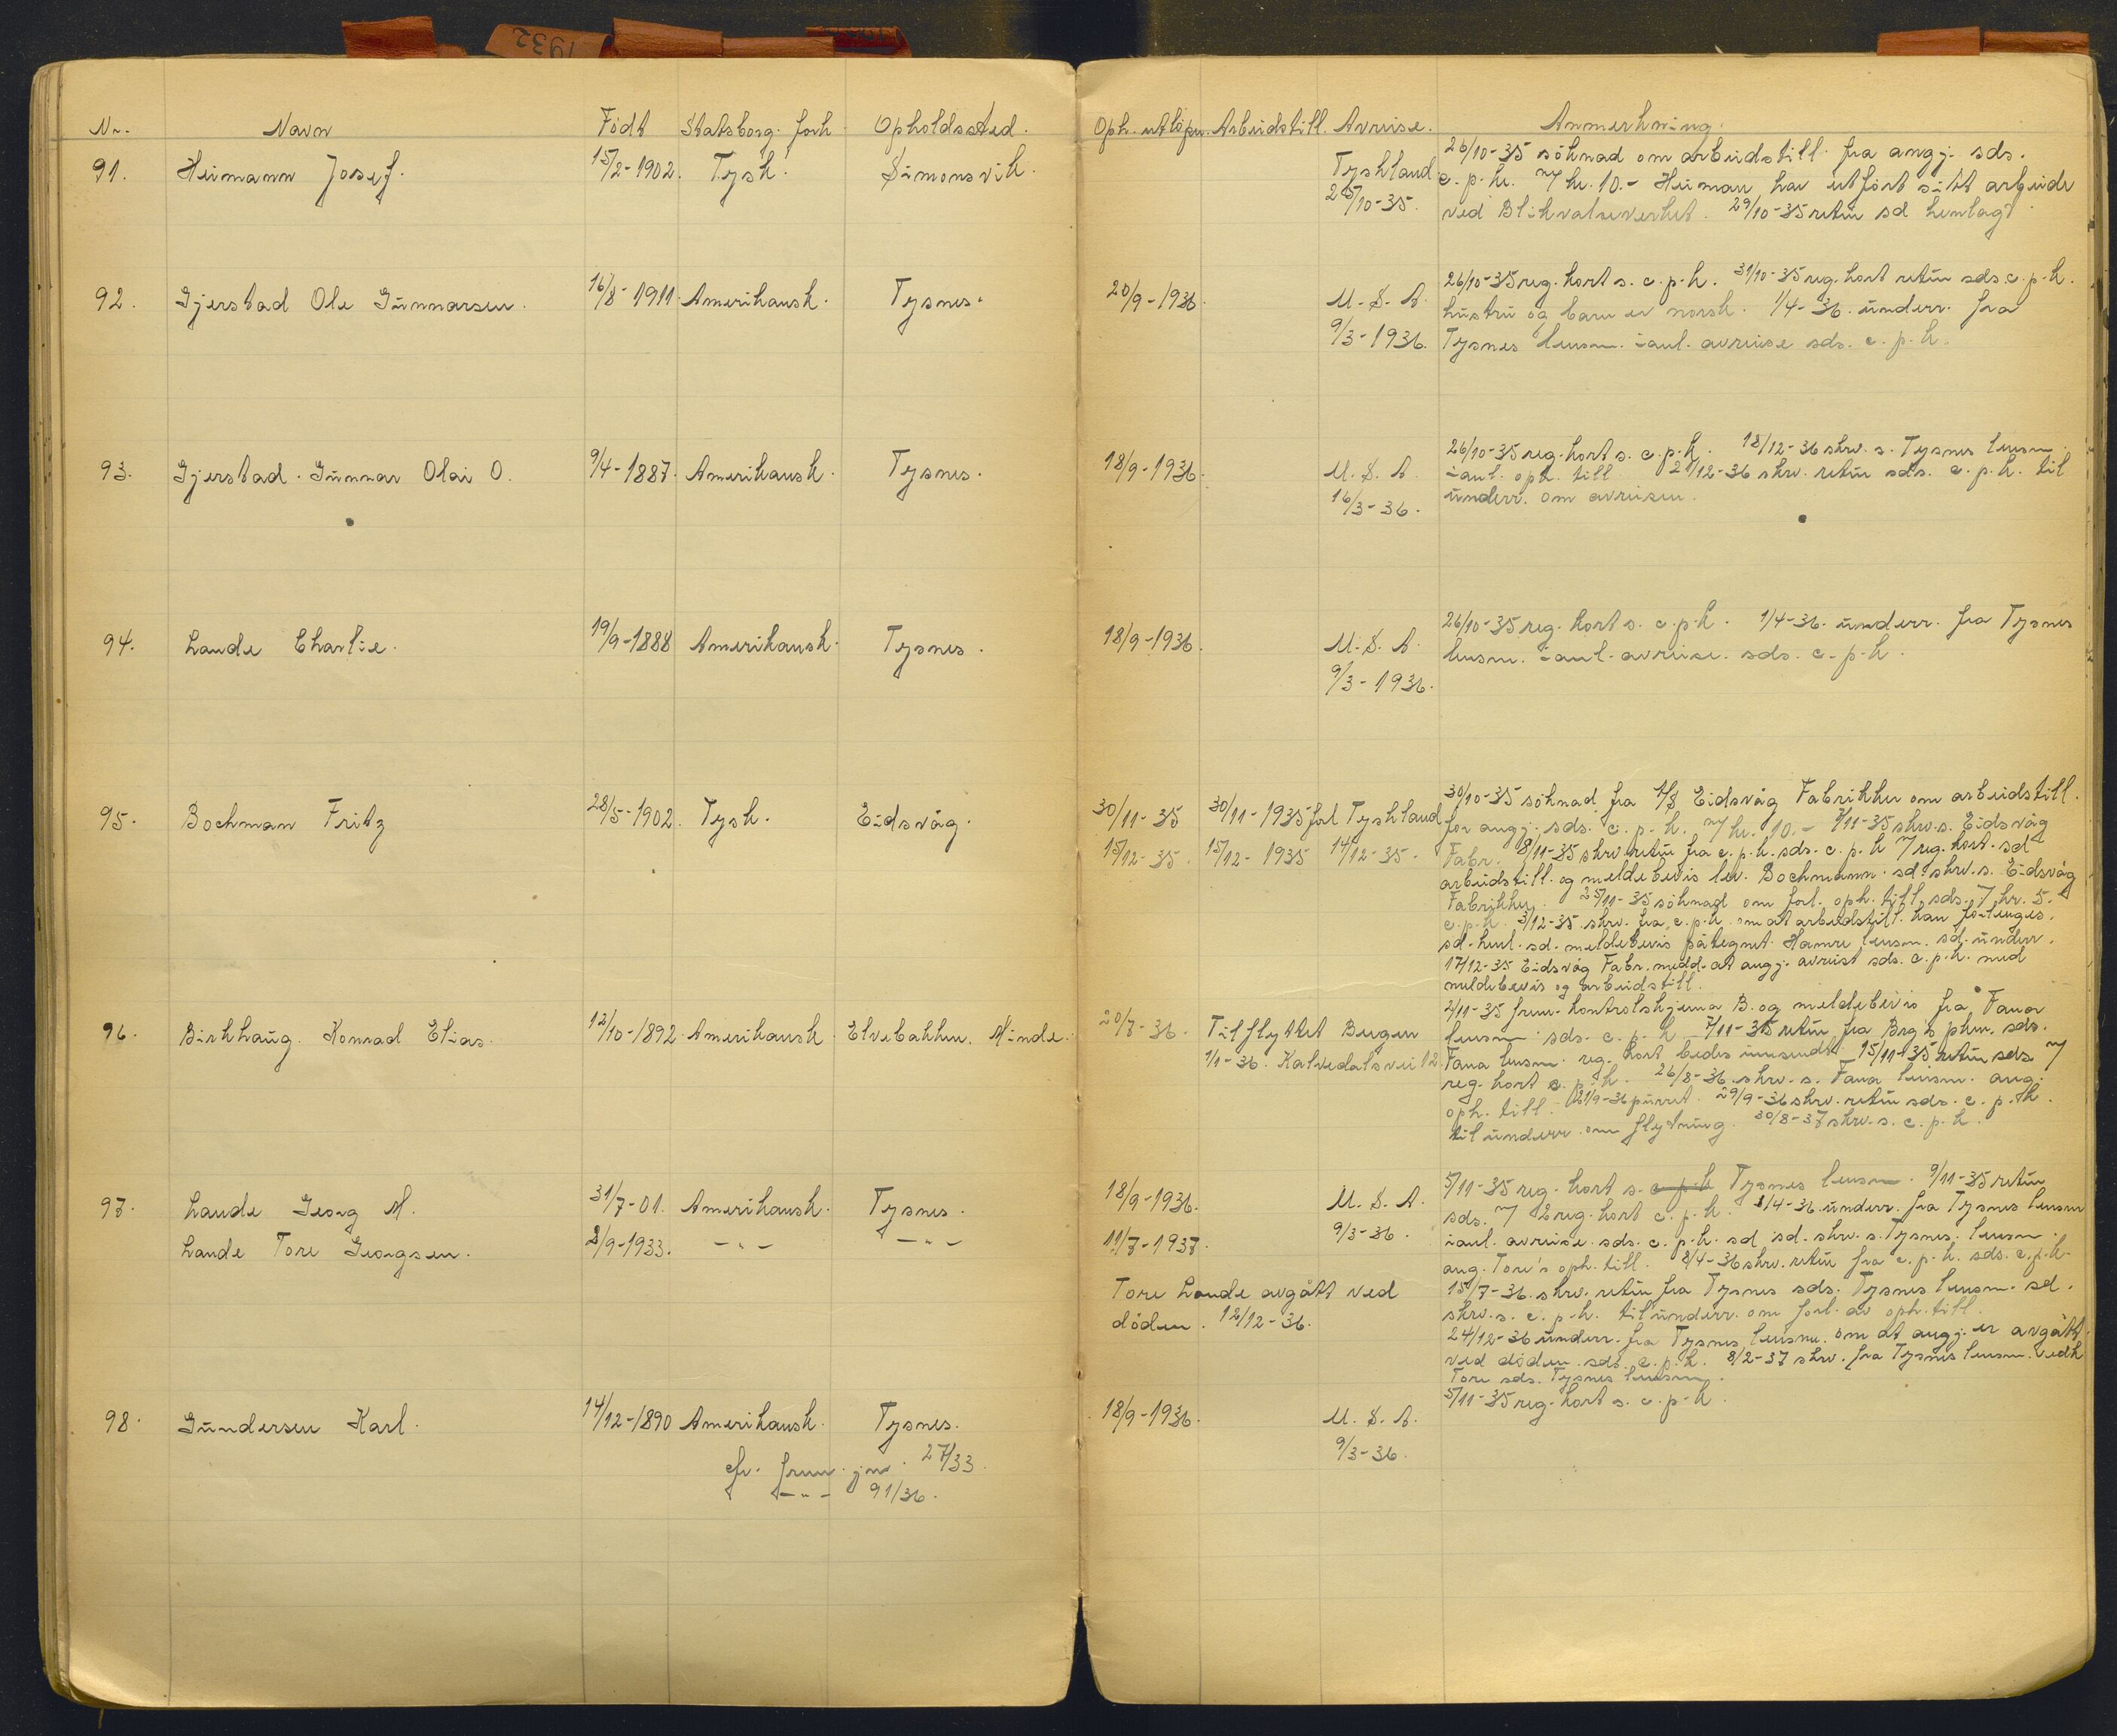 1932
Nr. Navn Født Statsborg. forh. Opholdssted. Oph. utløper. Arbeidstill. Avreise. Anmerkning.
91. Heimann Josef. 15/2-1902. Tysk. Simonsvik. Tyskland 25/10-35.
26/10-35 søknad om arbeidstill. fra angj. sds.
c. p. k. m/ kr. 10.- Heiman har utført sitt arbeide
ved Blikvalseverket. 29/10-35 retur sd henlagt.
92. Gjerstad Ole Gunnarsen. 16/8-1911. Amerikansk. Tysnes. 20/9-1936. U.S.A. 9/3-1936.
26/10-35 reg. kort s. c. p. k. 31/10-35 reg. kort retur sds. c. p. k.
hustru og barn er norsk. 1/4-36. underr. fra
Tysnes lensm. i anl. avreise sds. c. p. k.
93. Gjerstad. Gunnar Olai O. 9/4-1887. Amerikansk. Tysnes. 18/9-1936. U.S.A. 16/3-36.
26/10-35 reg. kort s. c. p. k. 18/12-36 skrv. s. Tysnes lensm.
i anl. oph. till. 21/12-36 skrv. retur sds. c. p. k. til
underr. om avreisen.
94. Lande Charlie. 19/9-1888 Amerikansk. Tysnes. 18/9-1936. U.S.A. 9/3-1936.
26/10-35 reg. kort s. c. p. k. 1/4-36. underr. fra Tysnes
lensm. i anl. avreise. sds. c. p. k.
95. Bochman Fritz 28/5-1902. Tysk. Eidsvåg. 30/11-35 30/11-1935 forl Tyskland
15/12-35. 15/12-1935 14/12-35.
30/10-35 søknad fra A/S Eidsvåg Fabrikker om arbeidstill.
for angj. sds. c. p. k. m/ kr. 10.- 7/11-35 skrv. s. Eidsvåg
Fabr. 8/11-35 skrv retur fra c. p. k. sds. c. p. k m/ reg. kort. sd
arbeidstill. og meldebevis lev. Bochmann. sd. skrv. s. Eidsvåg
Fabrikker. 25/11-35 søknad om forl. oph. till. sds. m/ kr. 5.-
c. p. k. 3/12-35 skrv. fra c. p. k. om at arbeidstill. kan forlenges.
sd. meldebevis påtegnet. Hamre lensm. sd. underr.
17/12-35 Eidsvåg Fabr. medd. at angj. avreist sds. c. p. k. med
meldebevis og arbeidstill.
96. Birkhaug. Konrad Elias. 12/10-1892. Amerikansk. Elvebakken. Minde. 20/8-36. Tilflyttet Bergen
1/1-36. Kalvedalsvei 12
2/11-35 frem. kontrolskjema B. og meldebevis fra Fana
lensm sds. c. p. k. 7/11-35 retur fra Brg's pkm. sds.
Fana lensm. reg. kort bedes innsendt. 15/11-35 retur sds m/
reg. kort c. p. k. 26/8-36 skrv. s. Fana lensm. ang.
oph. till. 21/9-36 purret. 29/9-36 skrv. retur sds. c. p. k.
til underr om flytning. 30/8-37 skrv. s. c. p. k.
97. Lande Georg M. 31/7-01. Amerikansk. Tysnes. 18/9-1936. U.S.A. 9/3-36.
Lande Tore Georgsen. 2/9-1933. -"- -"- 11/7-1937.
Tore Lande avgått ved
døden. 12/12-36.
5/11-35 reg. kort s. c p k Tysnes lensm. 9/11-35 retur
sds. m/ 2 reg. kort c. p. k. 1/4-36. underr. fra Tysnes lensm
i anl. avreise. sds. c. p. k. sd sd. skrv. s. Tysnes. lensm.
ang. Tore's oph. till. 8/4-36 skrv. retur fra c. p. k. sds. c. p. k.
15/7-36. skrv. retur fra Tysnes sds. Tysnes lensm. sd.
skrv. s. c. p. k. til underr. om forl. av oph. till.
24/12-36 underr. fra Tysnes lensm. om at angj. er avgått
ved døden. sds. c. p. k. 8/2-37 skrv. fra Tysnes lensm. vedk
Tore sds. Tysnes lensm.
98. Gundersen Karl. 14/12-1890 Amerikansk. Tysnes. 18/9-1936. U.S.A. 9/3-36.
5/11-35 reg. kort s. c. p. k.
cfr. frem. jn. 27/33.
-"- 91/36.